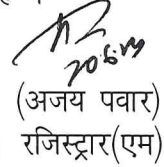 20.6.19
(अजय पवार)
रजिस्ट्रार(एम)